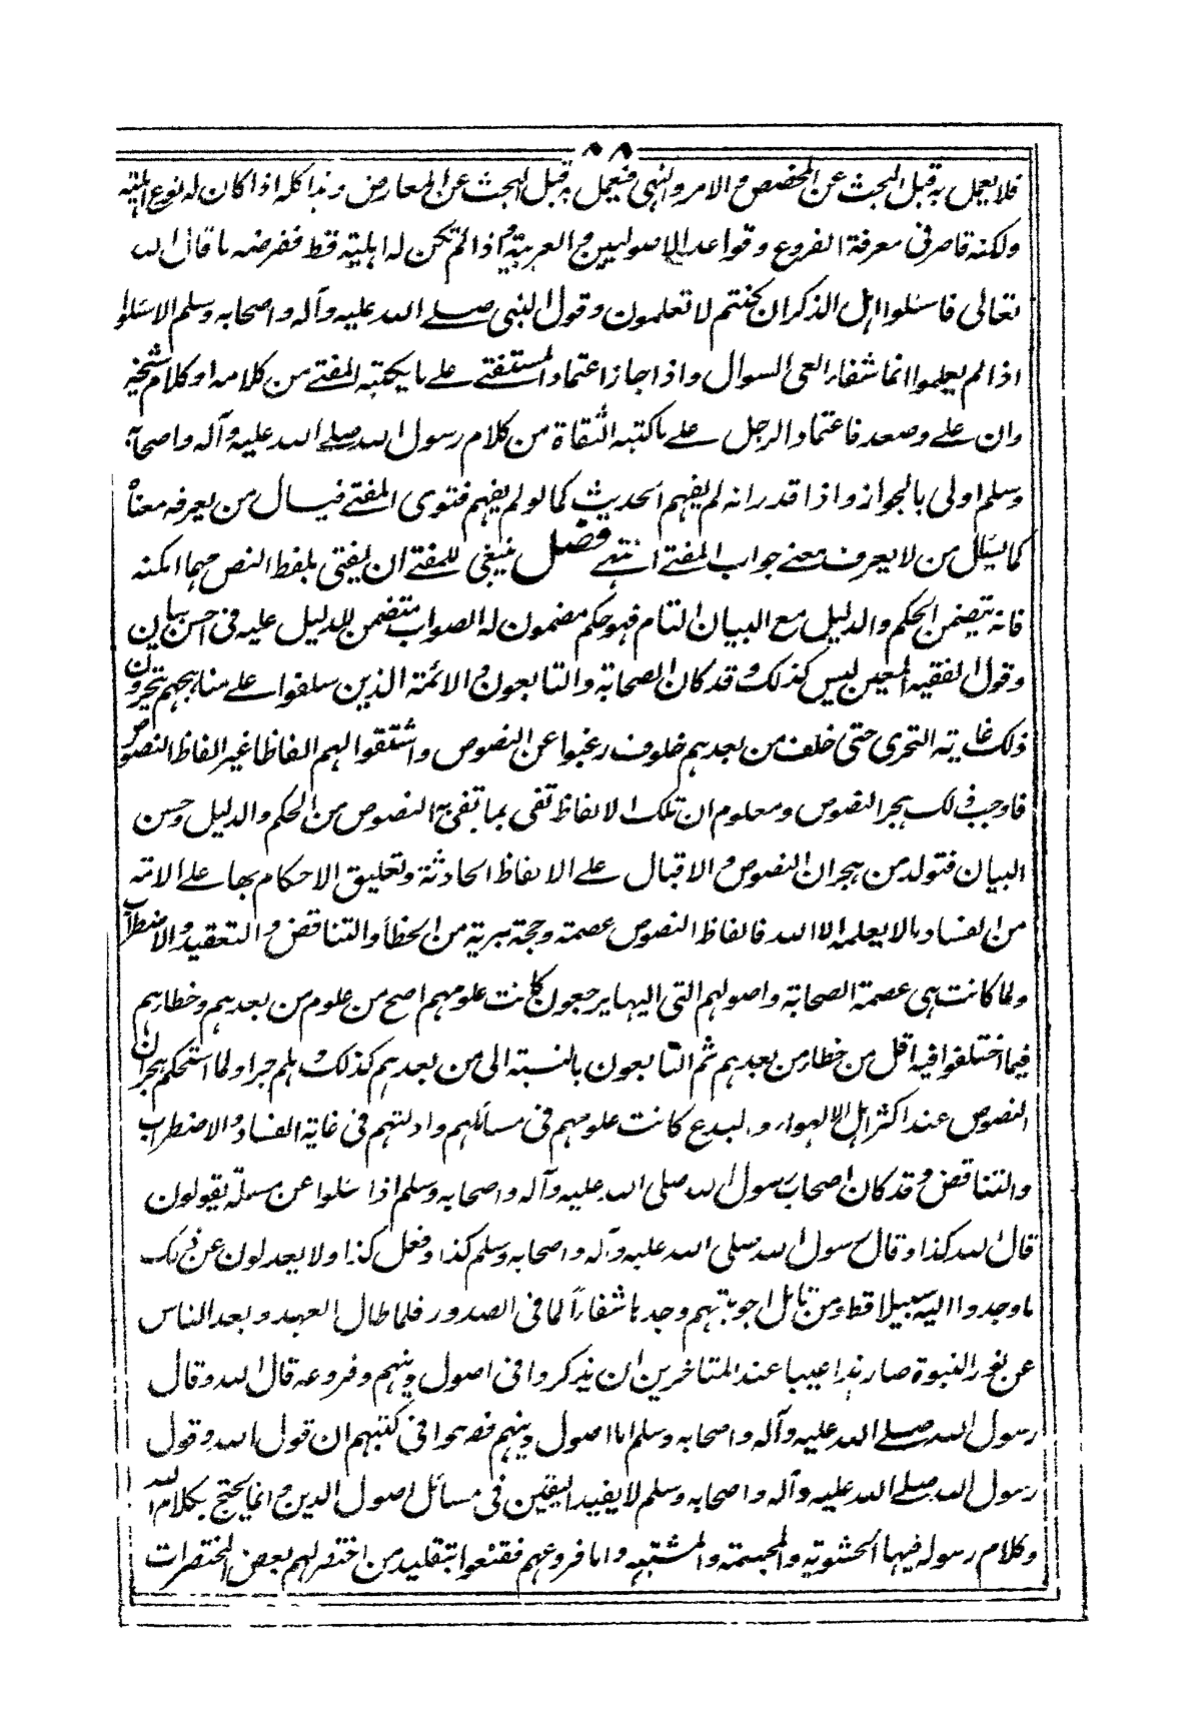 ٨٨
فلا يعمل به قبل البحث عن المخصص والامر والنهى فيعمل به قبل البحث عن المعارض وهذا كله اذا كان له نوع اهلية
ولكنه قاصر فى معرفة الفروع وقواعد الاصوليين والعربية واذا لم تكن له اهلية قط ففرضه ما قال الله
تعالى فاسئلوا اهل الذكر ان كنتم لا تعلمون وقول النبى صلے الله عليه وآله واصحابه وسلم الا سئلوا
اذا لم يعلموا انما شفاء العى السوال واذا جاز اعتماد المستفتے علے ما يكتبه المفتے من كلامه او كلام شيخه
وان علے وصعد فاعتماد الرجل علے ما كتبه الثقاة من كلام رسول الله صلے الله عليه وآله واصحابه
وسلم اولى بالجواز واذا قدر انه لم يفهم الحديث كما لو لم يفهم فتوى المفتے فيسال من يعرفه معناه
كما يسئل من لا يعرف معنے جواب المفتے انتهے فصل ينبغى للمفتے ان يفتى بلفظ النص مهما امكنه
فانه يتضمن الحكم والدليل مع البيان التام فهو حكم مضمون له الصواب متضمن للدليل عليه فى احسن بيان
وقول الفقيه المعين ليس كذلك وقد كان الصحابة والتابعون والائمة الذين سلفوا علے مناهجهم يتحرون
ذلك غاية التحرى حتى خلف من بعدهم خلوف رغبوا عن النصوص واشتقوا لهم الفاظا غير الفاظ النصوص
فاوجب ذلك هجر النصوص ومعلوم ان تلك الالفاظ تفى بما تفى به النصوص من الحكم والدليل وحسن
البيان فتولد من هجران النصوص والاقبال علے الالفاظ الحادثة وتعليق الاحكام بها علے الامة
من الفساد ما لا يعلمه الا الله فالفاظ النصوص عصمة وحجة برية من الخطأ والتناقض والتعقيد والاضطراب
ولما كانت هى عصمة الصحابة واصولهم التى اليها يرجعون كانت علومهم اصح من علوم من بعدهم وخطاءهم
فيما اختلفوا فيه اقل من خطاء من بعدهم ثم التابعون بالنسبة الى من بعدهم كذلك وهلم جرا ولما استحكم هجران
النصوص عند اكثر اهل الاهواء والبدع كانت علومهم فى مسائلهم وادلتهم فى غاية الفساد والاضطراب
والتناقض وقد كان اصحاب رسول الله صلى الله عليه وآله واصحابه وسلم اذا سئلوا عن مسئلة يقولون
قال الله كذا وقال رسول الله صلى الله عليه وآله واصحابه وسلم كذا وفعل كذا ولا يعدلون عن ذلك
ما وجدوا اليه سبيلا قط ومن تامل اجوبتهم وجدها شفاءً لما فى الصدور فلما طال العهد وبعد الناس
عن نور النبوة صار هذا عيبا عند المتاخرين ان يذكروا فى اصول دينهم وفروعه قال الله وقال
رسول الله صلے الله عليه وآله واصحابه وسلم اما اصول دينهم فصرحوا فى كتبهم ان قول الله وقول
رسول الله صلے الله عليه وآله واصحابه وسلم لا يفيد اليقين فى مسائل اصول الدين وانما يحتج بكلام الله
وكلام رسوله فيها الحشوية والمجسمة والمشبهة واما فروعهم فقنعوا بتقليد من اختصر لهم بعض المختصرات